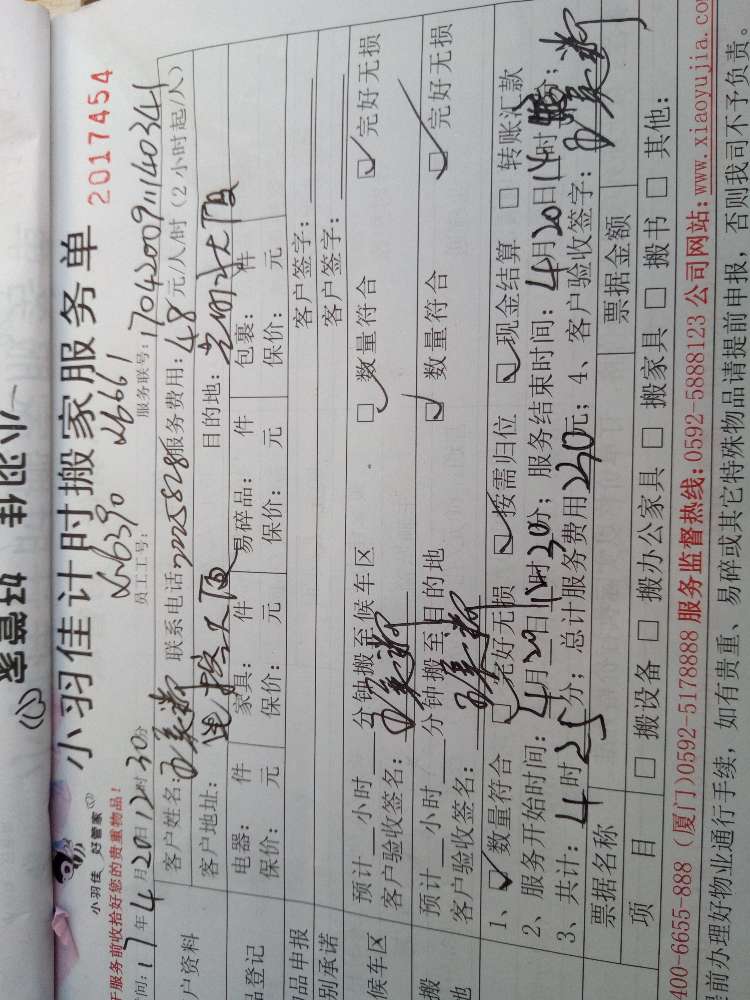 小羽佳
好管家
小羽佳 好管家
小羽佳计时搬家服务单
2017454
于服务前收拾好您的贵重物品!
员工工号: xb390 xb661
服务联号: 170420091140341
间: 17年4月20日12时30分
户资料
客户姓名: 联系电话: 2225828 服务费用: 48元/人/时(2小时起/人)
客户地址: 目的地:
品登记
电器: 件 家具: 件 易碎品: 件 包裹: 件
保价: 元 保价: 元 保价: 元 保价: 元
物品申报 客户签字:
别承诺 客户签字:
候车区
预计 小时 分钟搬至候车区 □数量符合 □完好无损
客户验收签名:
搬 地
预计 小时 分钟搬至目的地 □数量符合 □完好无损
客户验收签名:
1、□数量符合 □完好无损 □按需归位 □现金结算 □转账汇款
2、服务开始时间: 4月20日 时30分; 服务结束时间: 4月20日 时 分;
3、共计: 4时25分; 总计服务费用230元; 4、客户验收签字:
票据名称 票据金额
项目 □搬设备 □搬办公家具 □搬家具 □搬书 □其他:
400-6655-888 (厦门)0592-5178888 服务监督热线:0592-5888123 公司网站:www.xiaoyujia.co
前办理好物业通行手续, 如有贵重、易碎或其它特殊物品请提前申报, 否则我司不予负责。